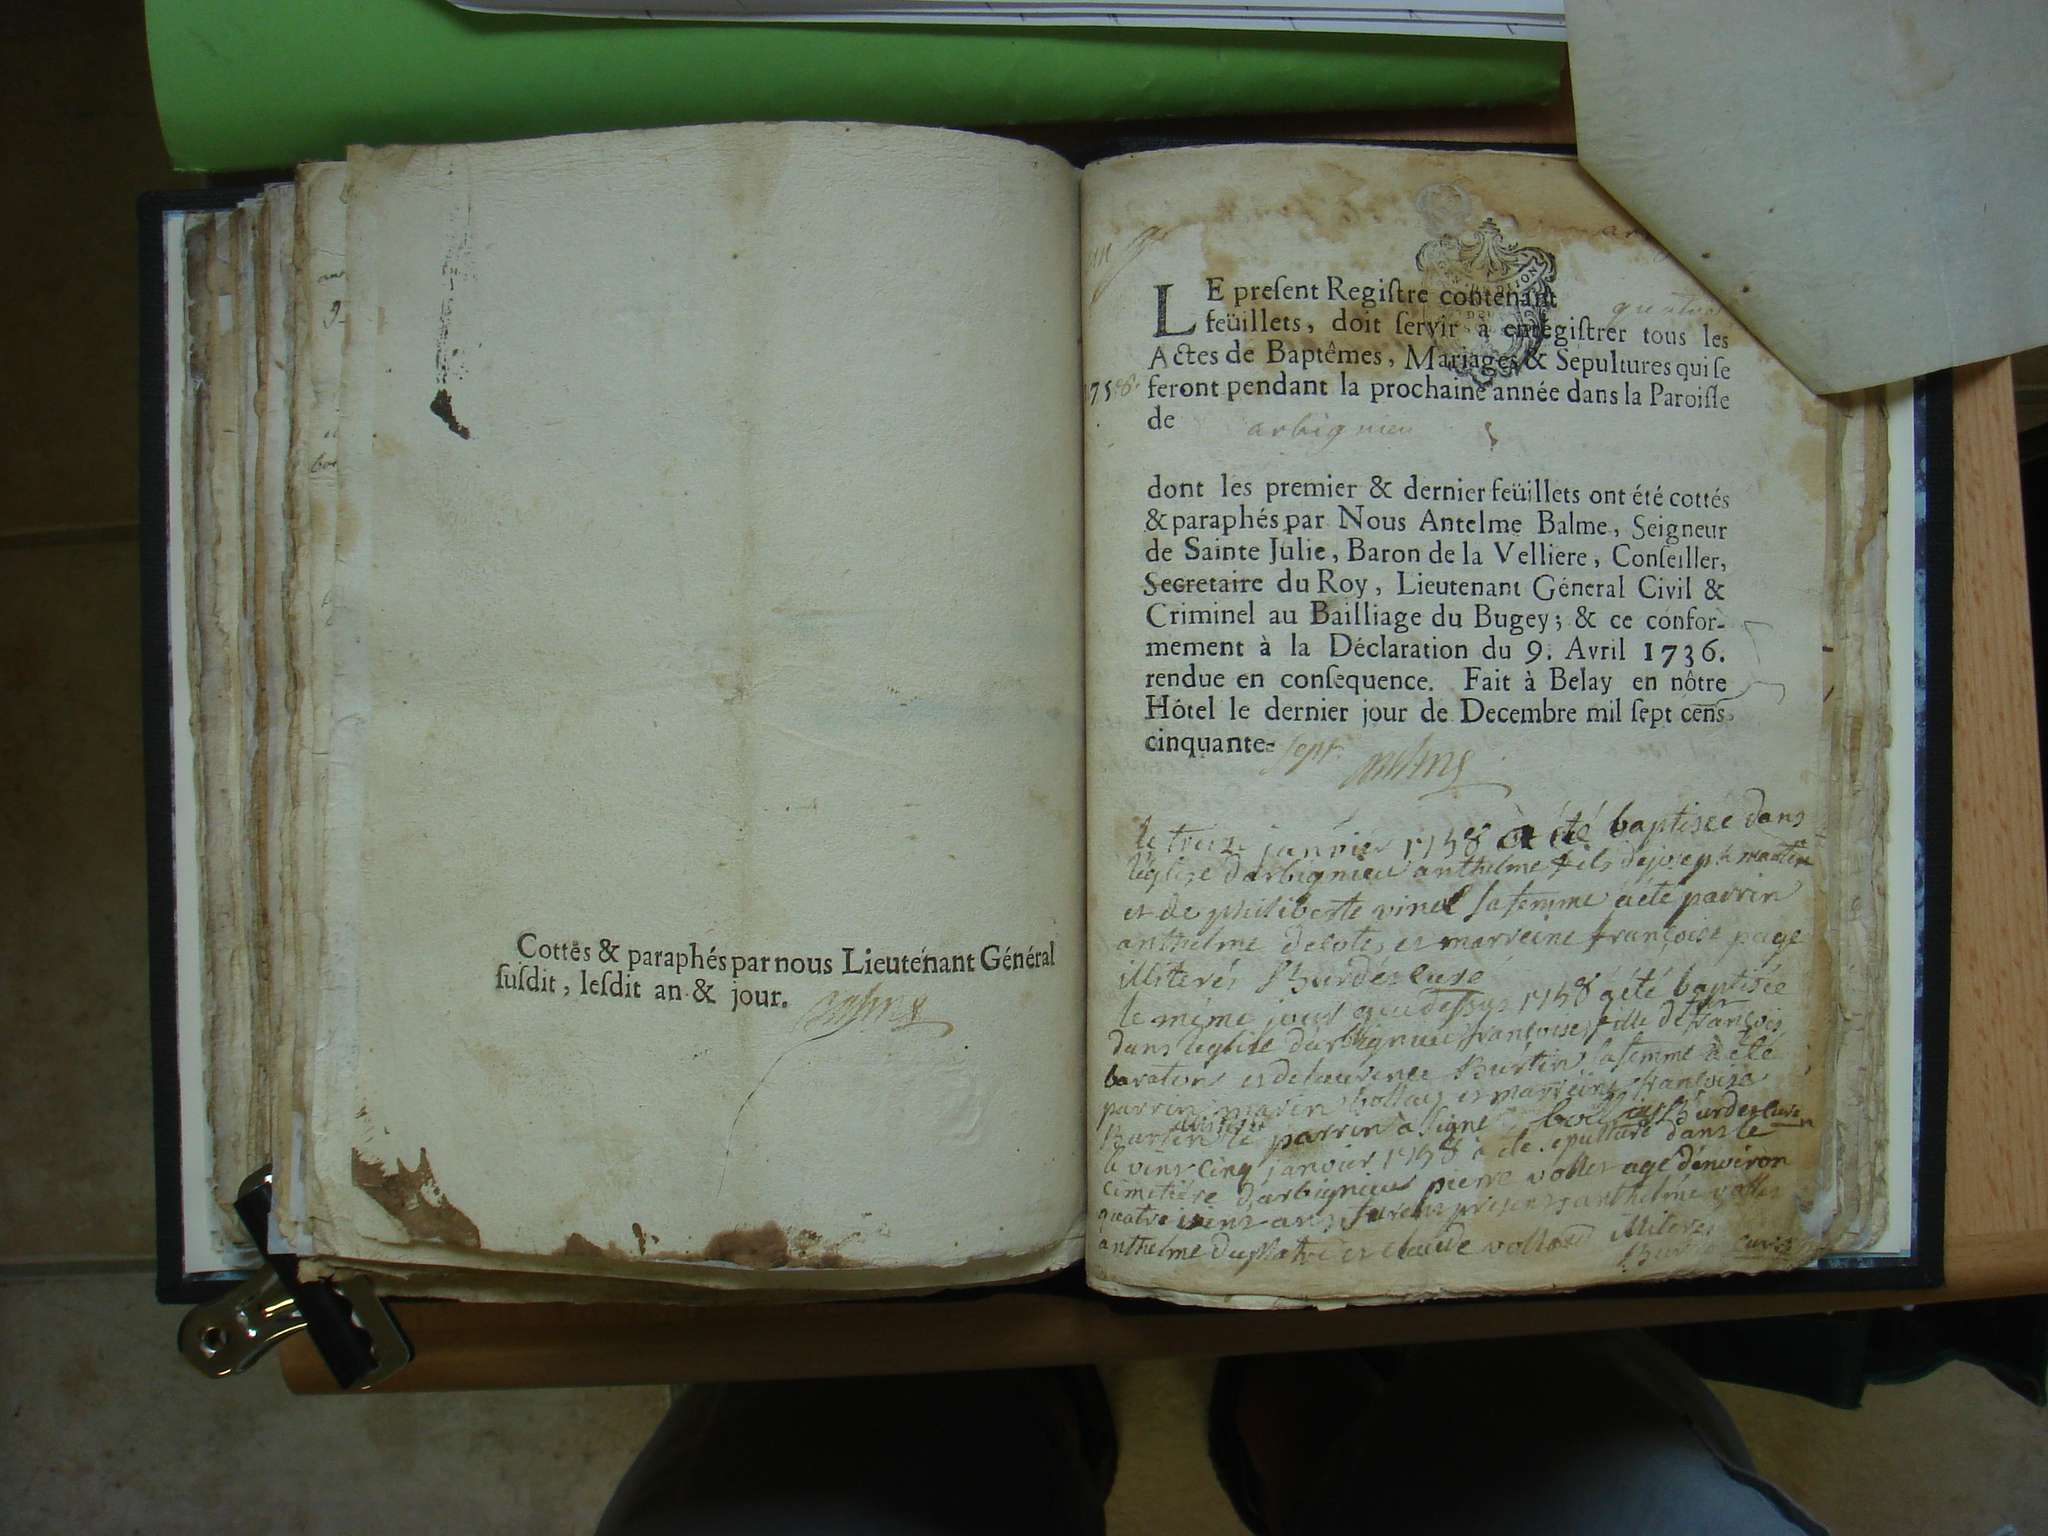 Cottés & paraphés par nous Lieutenant Général
suſdit, leſdit an & jour.
LE preſent Regiſtre contenant
feüillets, doit ſervir à enregiſtrer tous les
Actes de Baptêmes, Mariages & Sepultures qui ſe
feront pendant la prochaine année dans la Paroiſſe
1758
de arbignieu
dont les premier & dernier feüillets ont été cottés
& paraphés par Nous Antelme Balme, Seigneur
de Sainte Julie, Baron de la Velliere, Conſeiller,
Secretaire du Roy, Lieutenant Géneral Civil &
Criminel au Bailliage du Bugey; & ce confor-
mement à la Déclaration du 9. Avril 1736.
rendue en conſequence. Fait à Belay en nôtre
Hôtel le dernier jour de Decembre mil ſept cens
cinquante- sept
le treize janvier 1758 à été baptisee dans
l'eglise darbignieu anthelme fils de joseph martin
et de philiberte vinel sa femme a été parrin
anthelme delote et marreine françoise page
illiterés curé
le même jour que dessus 1758 a été baptisée
dans l'eglise darbignieu françoise fille de françois
et de laurence Burtin sa femme à été
parrin marin et marreine françoise
Burtin le parrin à signé
le vint cinq janvier 1758 à été sepulturé dans le
cimetiére darbignieu pierre vollet agé denviron
quatre vint ans furent presents anthelme
anthelme et claude illiteres
curé